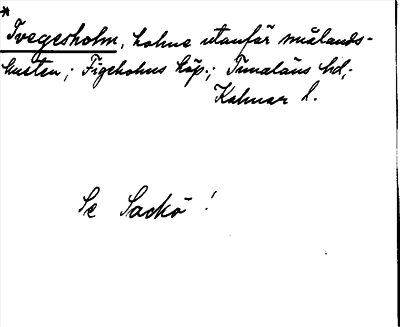 * Tvegesholm, holme utanför smålands-
kusten; Figeholms köp.; Tunaläns hd;
Kalmar l.
Se Sackö!